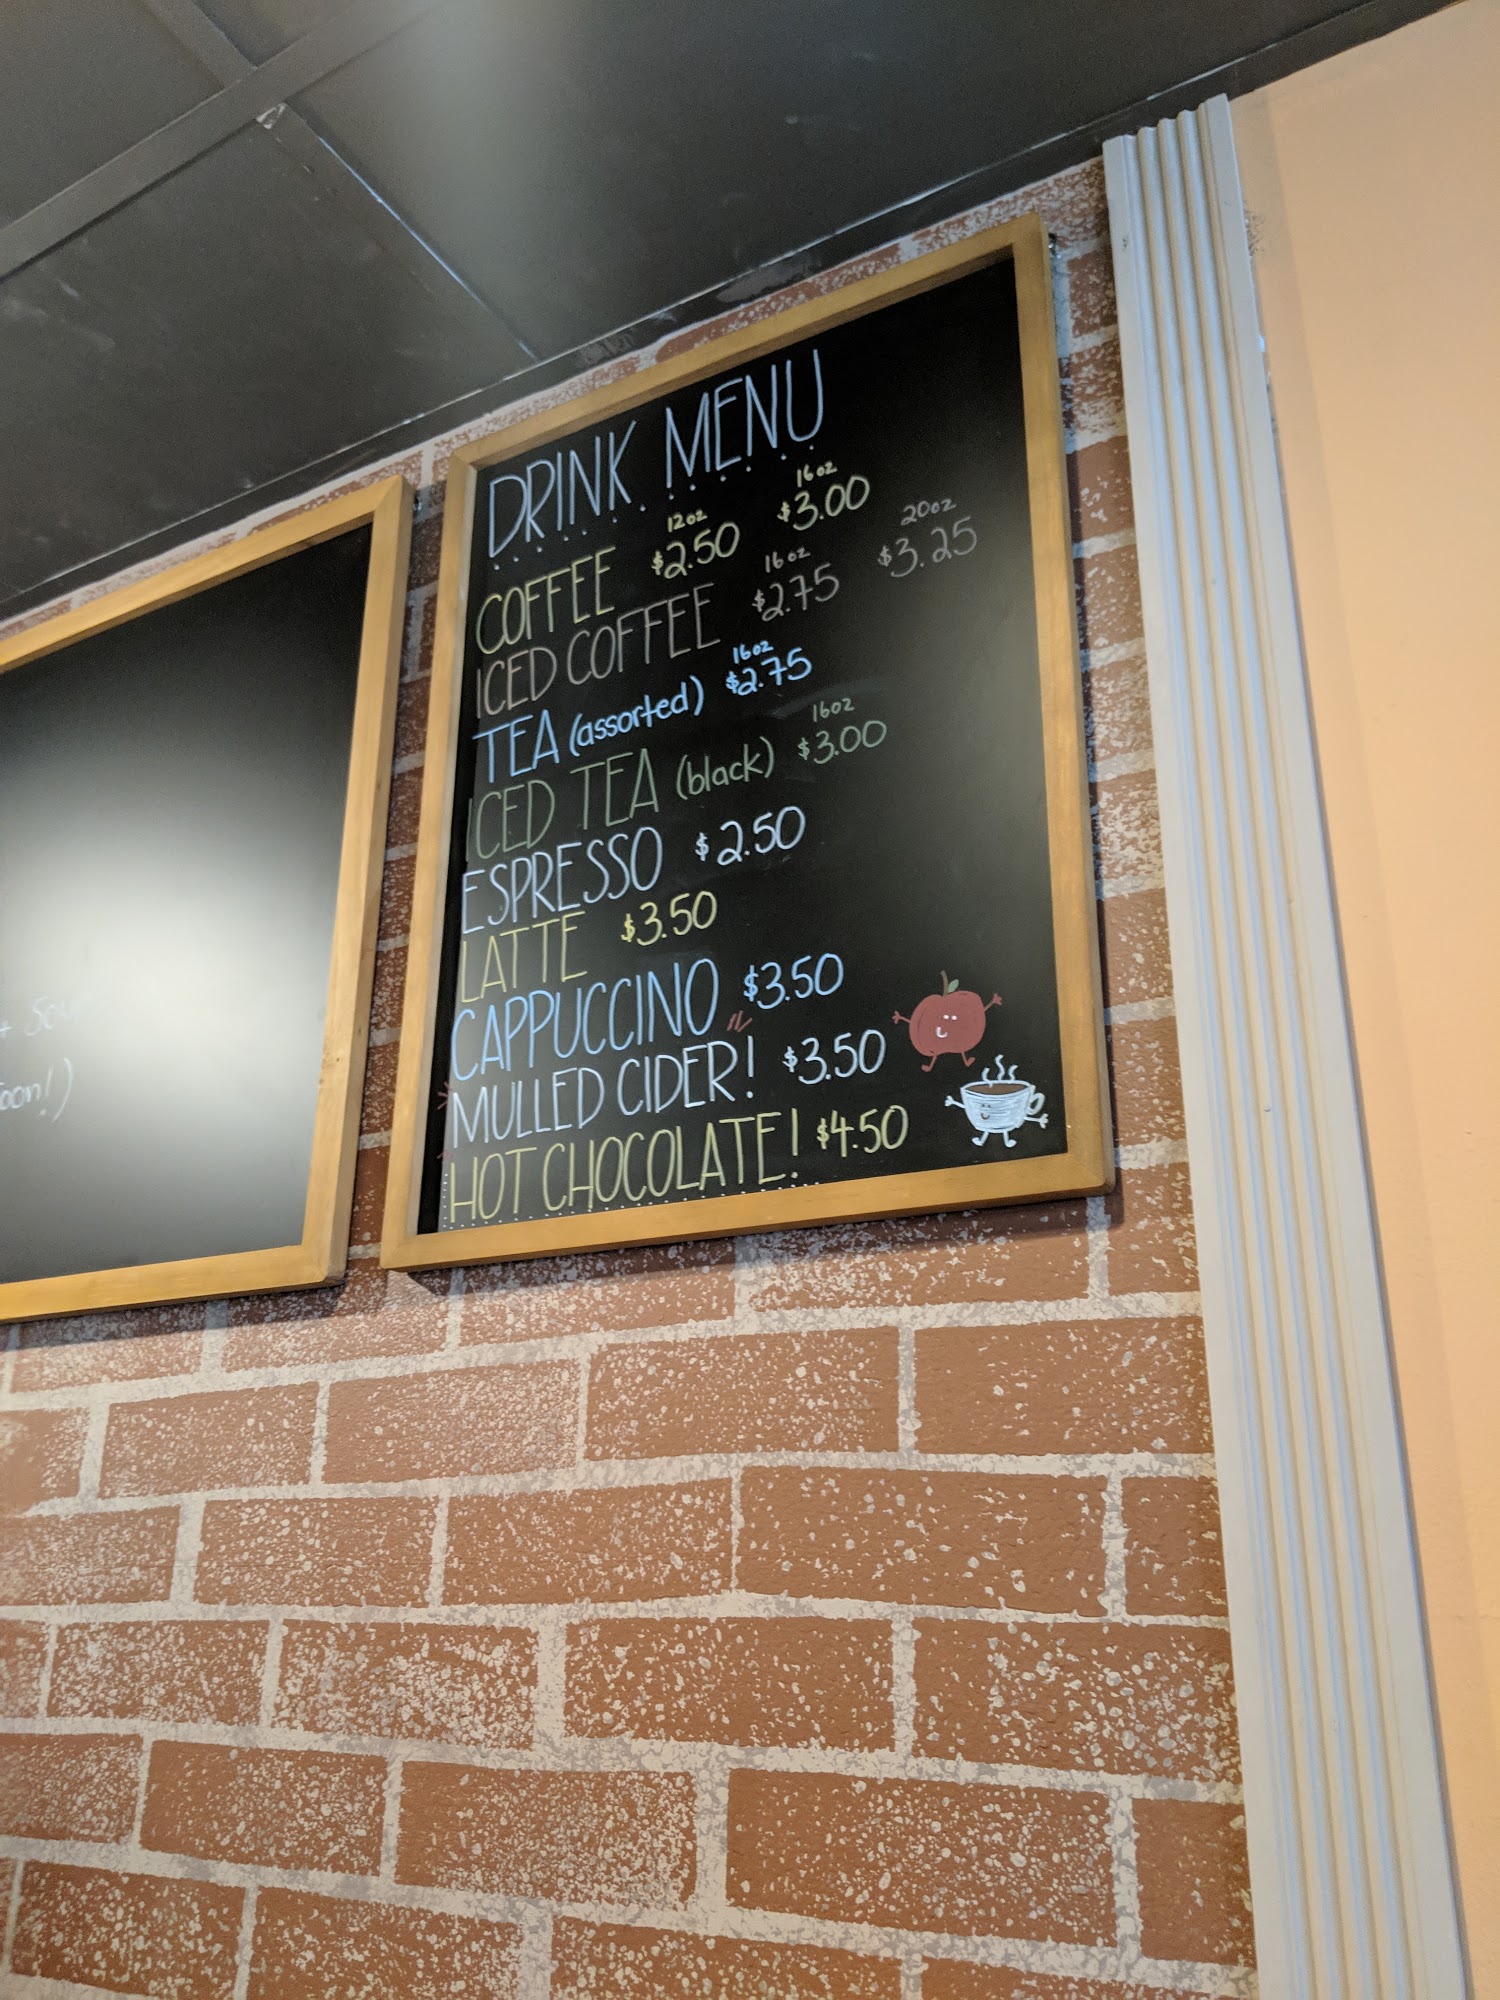 DRINK MENU
12oz 16oz
COFFEE $2.50 $3.00
16oz 20oz
ICED COFFEE $2.75 $3.25
16oz
TEA (assorted) $2.75
16oz
ICED TEA (black) $3.00
ESPRESSO $2.50
LATTE $3.50
CAPPUCCINO $3.50
MULLED CIDER! $3.50
HOT CHOCOLATE! $4.50